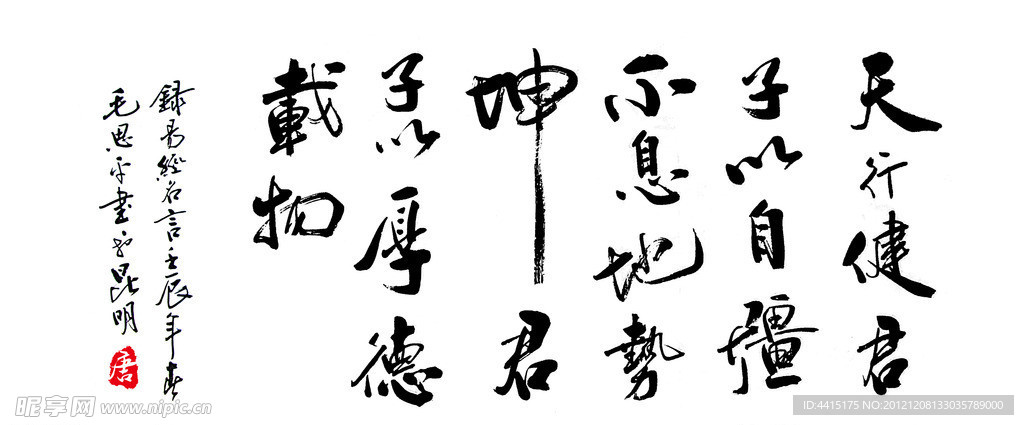 天行健君
子以自彊
不息地勢
坤君
子以厚德
載物
錄易經名言壬辰年春
毛思平書於昆明
唐
昵享网 www.nipic.cn
ID:4415175 NO:20121208133035789000